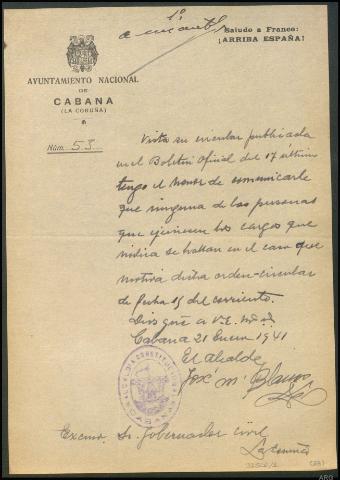 Saludo a Franco:
¡ARRIBA ESPAÑA!
1º
AYUNTAMIENTO NACIONAL
DE
CABANA
(LA CORUÑA)
Núm. 53
Vista su circular publicada
en el Boletin Oficial del 17 último
tengo el honor de comunicarle
que ninguna de las personas
que ejercen los cargos que
indica se hallan en el caso que
motiva dicha orden-circular
de fecha 15 del corriente.
Dios guie a V.E. m. a.
Cabana 21 Enero 1941
El alcalde
José Mª Blanco
Excmo. Sr. Gobernador civil
La Coruña
ARG